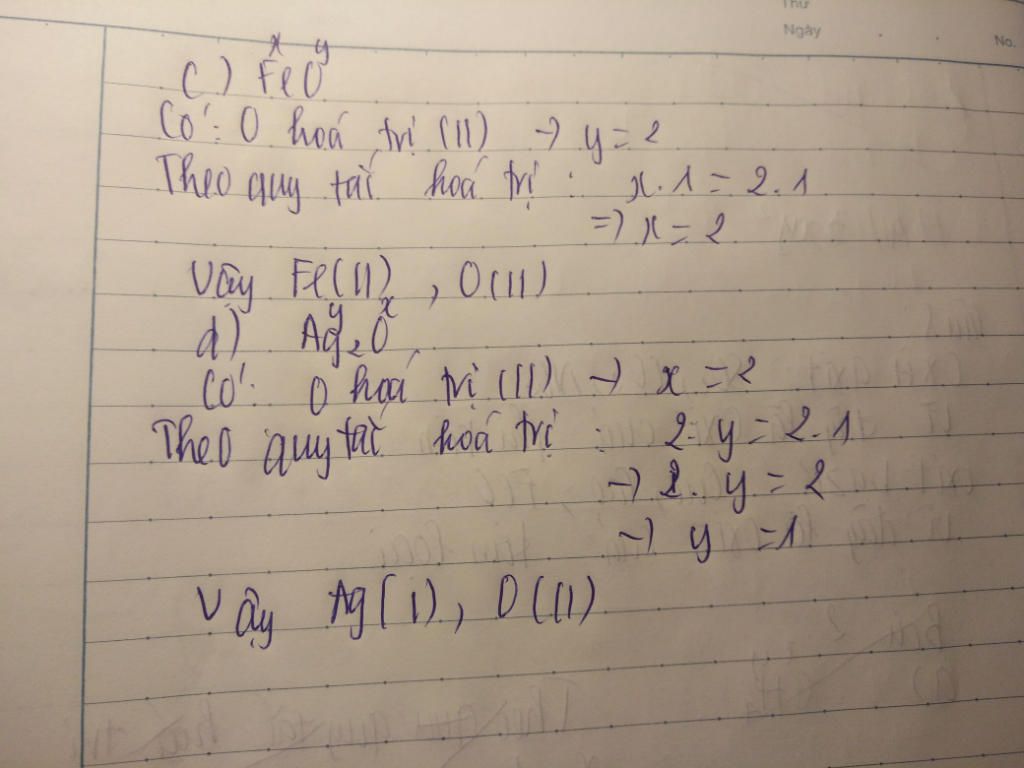 Thứ
Ngày
No.
x y
C) FeO
Có: O hoá trị (II) → y = 2
Theo quy tắc hoá trị : x.1 = 2.1
=> x = 2
Vậy Fe(II), O(II)
y x
d) Ag2O
Có: O hoá trị (II) → x = 2
Theo quy tắc hoá trị : 2.y = 2.1
→ 2.y = 2
→ y = 1
Vậy Ag(I), O(II)